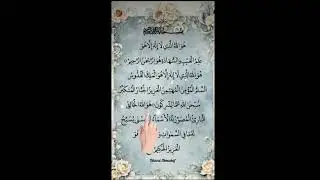 هُوَ اللَّهُ الَّذِي لَا إِلَٰهَ إِلَّا هُوَ
عَالِمُ الْغَيْبِ وَالشَّهَادَةِ هُوَ الرَّحْمَٰنُ الرَّحِيمُ
هُوَ اللَّهُ الَّذِي لَا إِلَٰهَ إِلَّا هُوَ الْمَلِكُ الْقُدُّوسُ
السَّلَامُ الْمُؤْمِنُ الْمُهَيْمِنُ الْعَزِيزُ الْجَبَّارُ الْمُتَكَبِّرُ
سُبْحَانَ اللَّهِ عَمَّا يُشْرِكُونَ هُوَ اللَّهُ الْخَالِقُ
الْبَارِئُ الْمُصَوِّرُ لَهُ الْأَسْمَاءُ يُسَبِّحُ
لَهُ مَا فِي السَّمَاوَاتِ هُوَ
الْعَزِيزُ الْحَكِيمُ